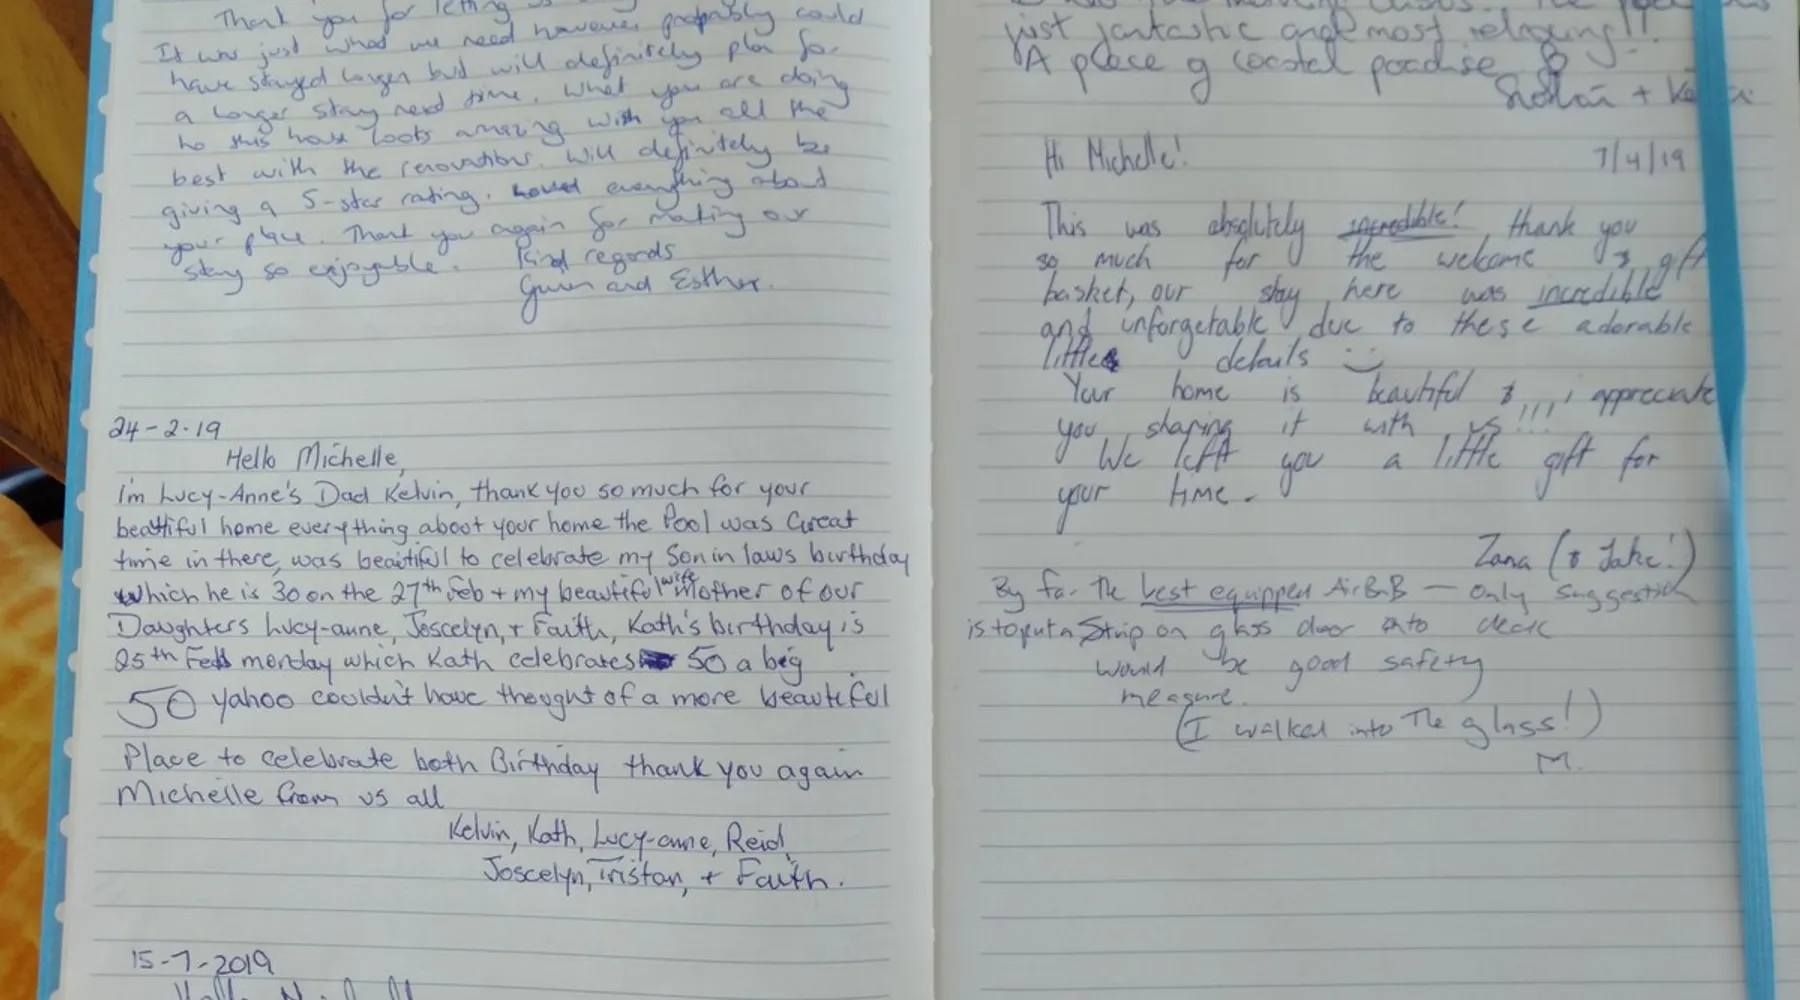 Thank you for letting us
It was just what we need however probably could
have stayed longer but will definitely plan for
a longer stay next time. What you are doing
to this house looks amazing with you all the
best with the renovations. Will definitely be
giving a 5-star rating. Loved everything about
your place. Thank you again for making our
stay so enjoyable. Kind regards
Gwen and Esther.
24-2-19
Hello Michelle,
I'm Lucy-Anne's Dad Kelvin, thank you so much for your
beautiful home everything about your home the Pool was Great
time in there, was beautiful to celebrate my Son in laws birthday
which he is 30 on the 27th Feb + my beautiful wife Mother of our
Daughters Lucy-anne, Joscelyn, + Faith, Kath's birthday is
25th Feb monday which Kath celebrates 50 a big
50 yahoo couldn't have thought of a more beautiful
Place to celebrate both Birthday thank you again
Michelle from us all
Kelvin, Kath, Lucy-anne, Reid,
Joscelyn, Tristan, + Faith.
15-7-2019
just fantastic and most relaxing!!
A place of coastal paradise
Hi Michelle! 7/4/19
This was absolutely incredible! thank you
so much for the welcome & gift
basket, our stay here was incredible
and unforgetable due to these adorable
little details :)
Your home is beautiful & i appreciate
you sharing it with us!!!
We left you a little gift for
your time.
Zana (& Jake!)
By far the best equipped AirBnB — only suggestion
is to put a strip on glass door onto deck
would be good safety
measure.
(I walked into the glass!)
M.